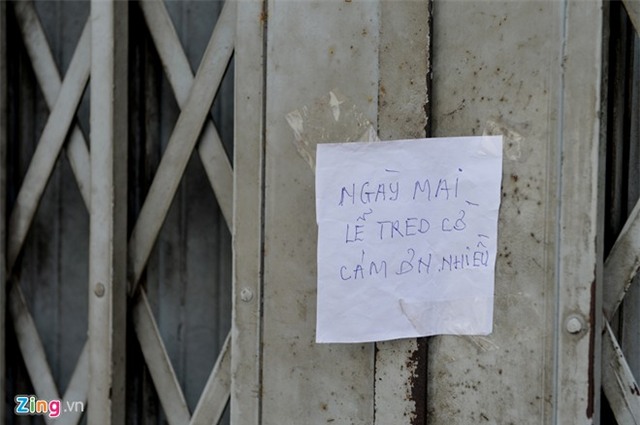 NGÀY MAI
LỄ TREO CỜ
CÁM ƠN. NHIỀU
Zing.vn